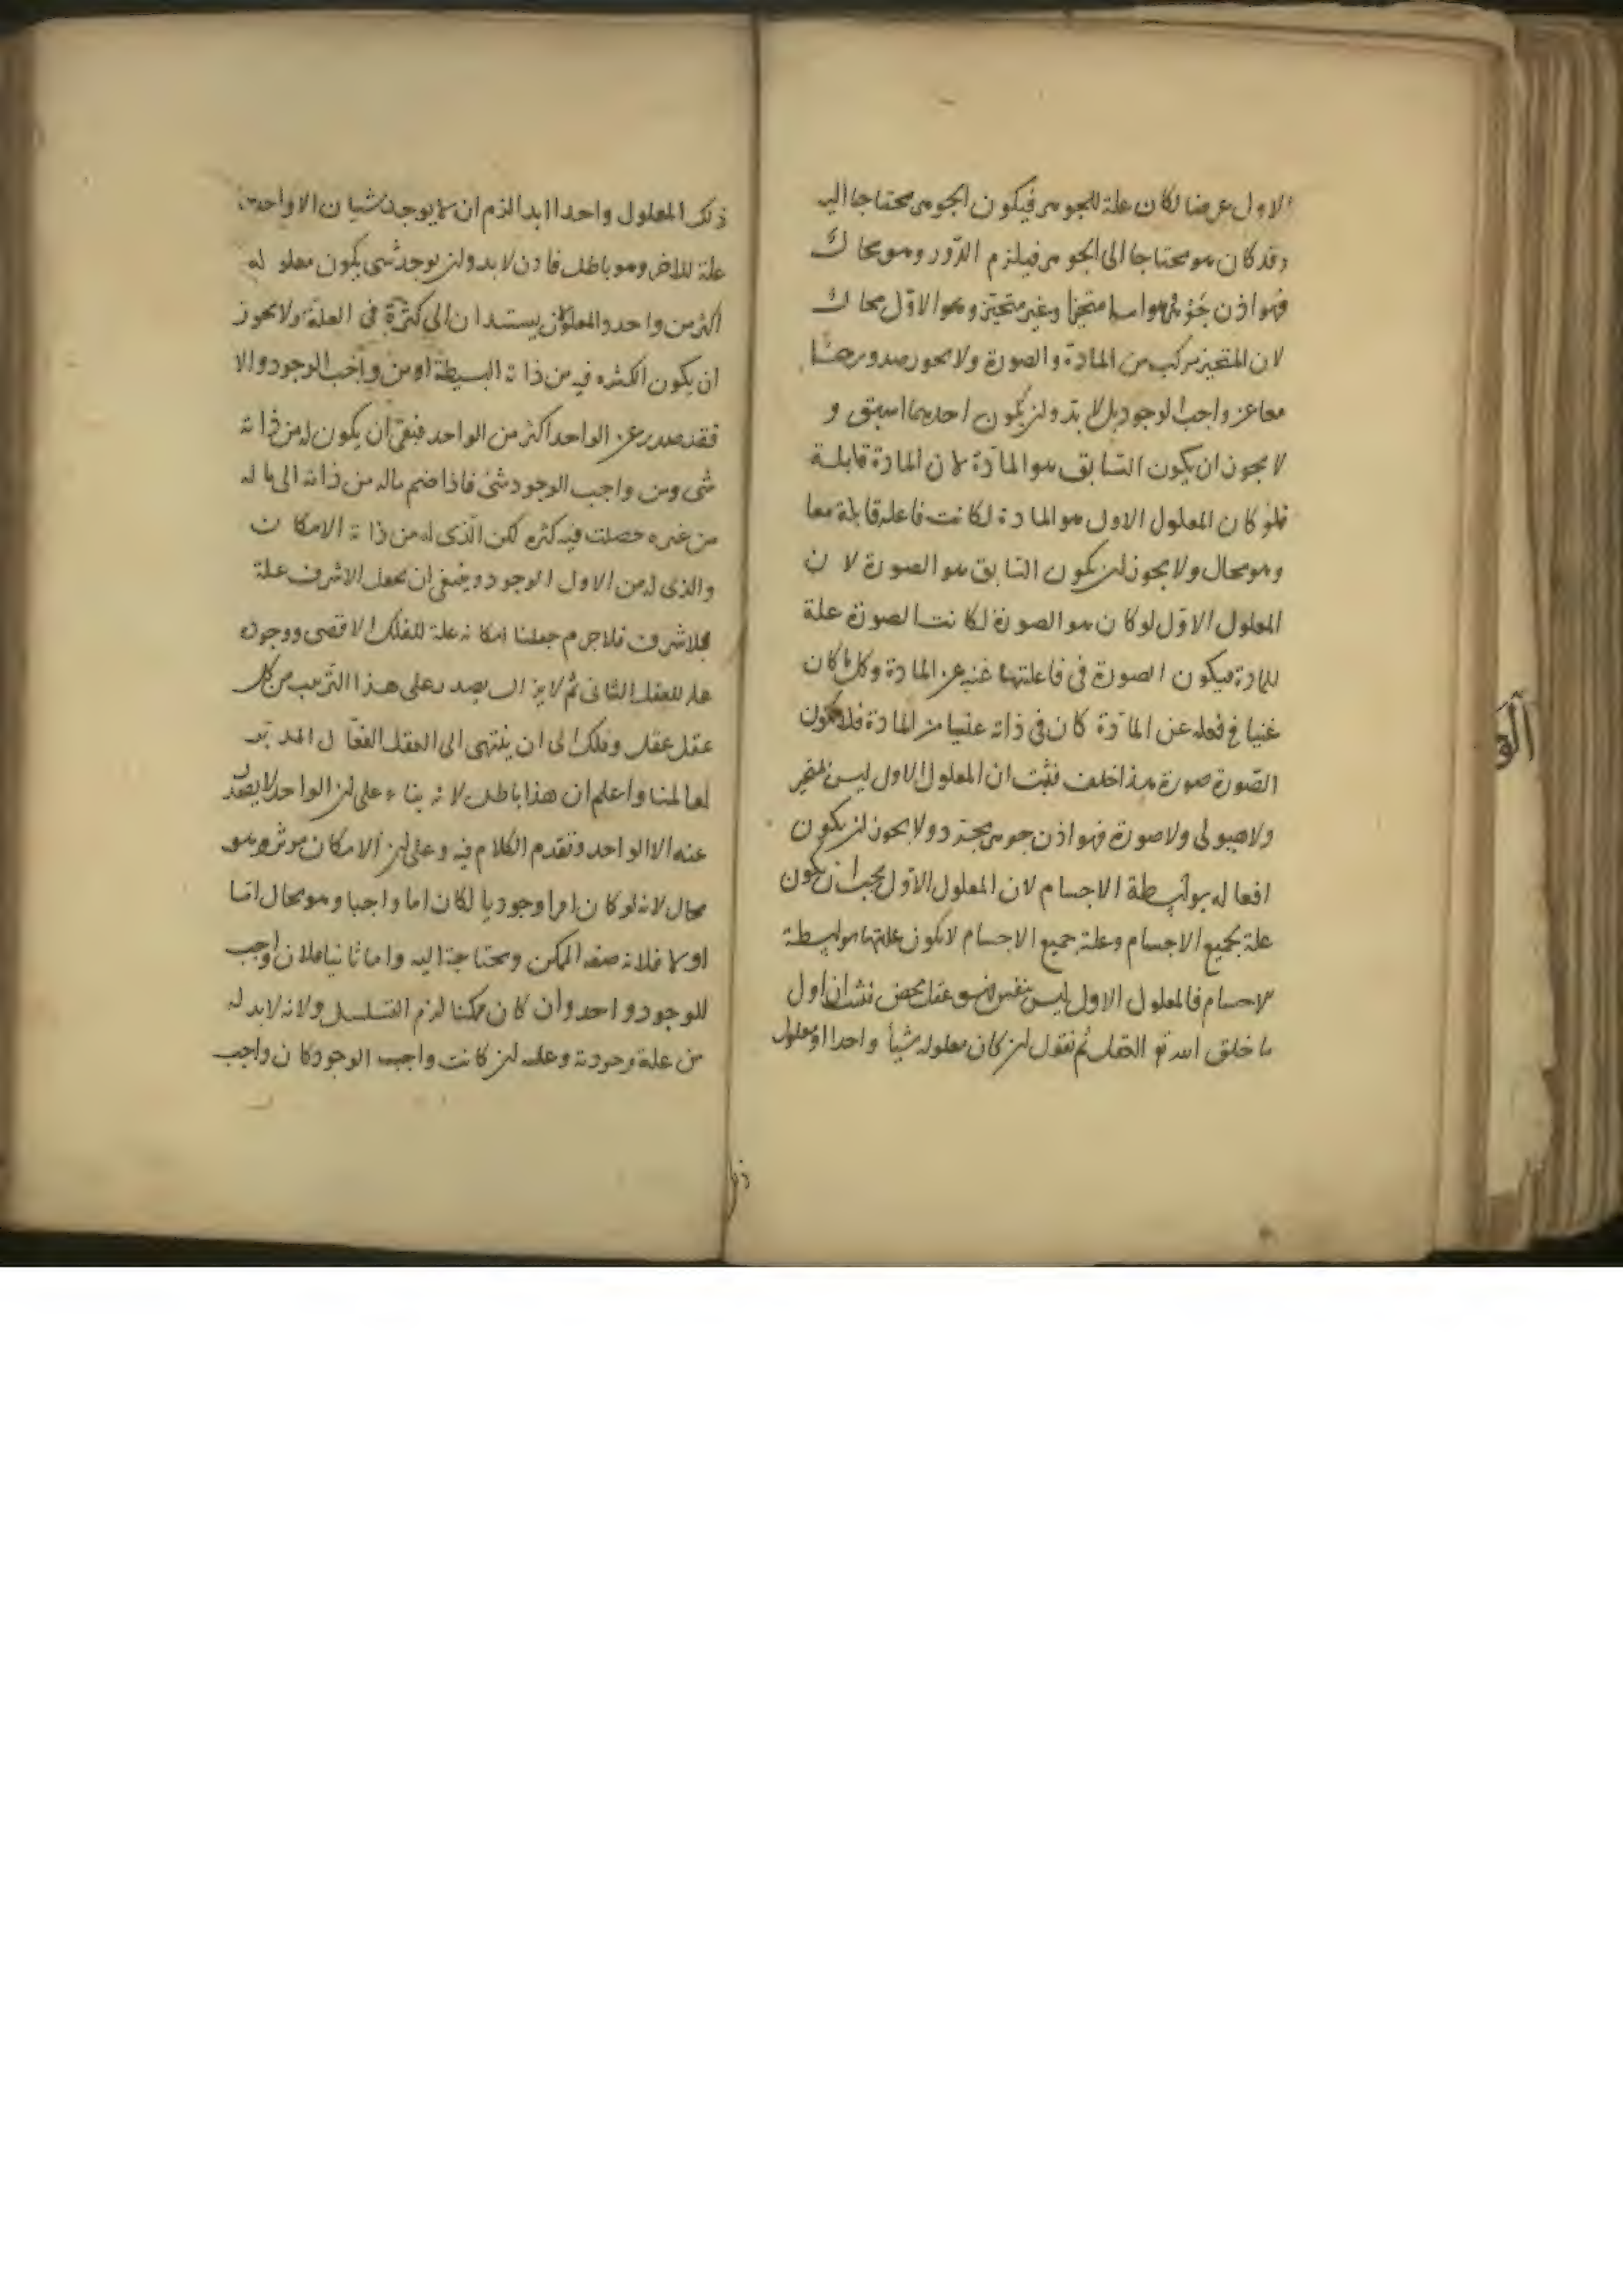 الاول عرضا لكان علة للجوهر فيكون الجوهر محتاجا اليه
وقد كان هو محتاجا الى الجوهر فيلزم الدّور وهو محال
فهو اذن جوهر وهو اما متحيز او غير متحيّز وهو الاوّل محال
لان المتحيز مركب من المادّة والصورة ولا يجوز صدورهما
معا عن واجب الوجود بل لا بدّ وان يكون احديهما اسبق و
لا يجوز ان يكون السابق هو المادّة لان المادة قابلة
فلو كان المعلول الاول هو المادة لكانت فاعله قابلة معا
وهو محال ولا يجوز ان يكون السابق هو الصورة لان
المعلول الاوّل لو كان هو الصورة لكانت الصورة علة
للمادة فيكون الصورة فى فاعليتها غنية عن المادة وكل ما كان
غنيا فى فعله عن المادّة كان فى ذاته غنيا من المادة فلا يكون
الصّورة صورة هذا خلف فثبت ان المعلول الاول ليس بمتحيز
ولا هيولى ولا صورة فهو اذن جوهر مجرد ولا يجوز ان يكون
افعاله بواسطة الاجسام لان المعلول الاوّل يجب ان يكون
علة لجميع الاجسام وعلة جميع الاجسام لا يكون عليتها بواسطة
الاجسام فالمعلول الاول ليس بنفس فهو عقل محض فثبت ان اول
ما خلق الله تع العقل ثم نقول ان كان معلوله شيأ واحدا ومعلول
ذلك المعلول واحدا ابدا لزم ان لا يوجد شيان الا واحدهما
علة للاخر وهو باطل فاذن لا بد وان يوجد شى يكون معلوله
اكثر من واحد والمعلولان يستندان الى كثرة فى العلة ولا يجوز
ان يكون الكثره فيه من ذاته البسيطة او من واجب الوجود والا
فقد صدر عن الواحد اكثر من الواحد فبقى ان يكون له من ذاته
شى ومن واجب الوجود شى فاذا ضم ماله من ذاته الى ما له
من غيره حصلت فيه كثره لكن الّذى له من ذاته الامكان
والذى له من الاول الوجود وينبغى ان يجعل الاشرف علة
للاشرف فلا جرم جعلنا امكانه علة للفلك الاقصى ووجوده
علة للعقل الثانى ثم لا يزال يصدر على هذا الترتيب من كل
عقل عقل وفلك الى ان ينتهى الى العقل الفعّال المدبّر
لعالمنا واعلم ان هذا باطل لانه بناء على ان الواحد لا يصدر
عنه الا الواحد وتقدم الكلام فيه وعلى ان الامكان موثر وهو
محال لانه لو كان امرا وجوديا لكان اما واجبا وهو محال امّا
اولا فلانه صفه الممكن ومحتاجة اليه واما ثانيا فلان واجب
الوجود واحد وان كان ممكنا لزم التسلسل ولانه لابد له
من علة موجودة وعلته ان كانت واجب الوجود كان واجب